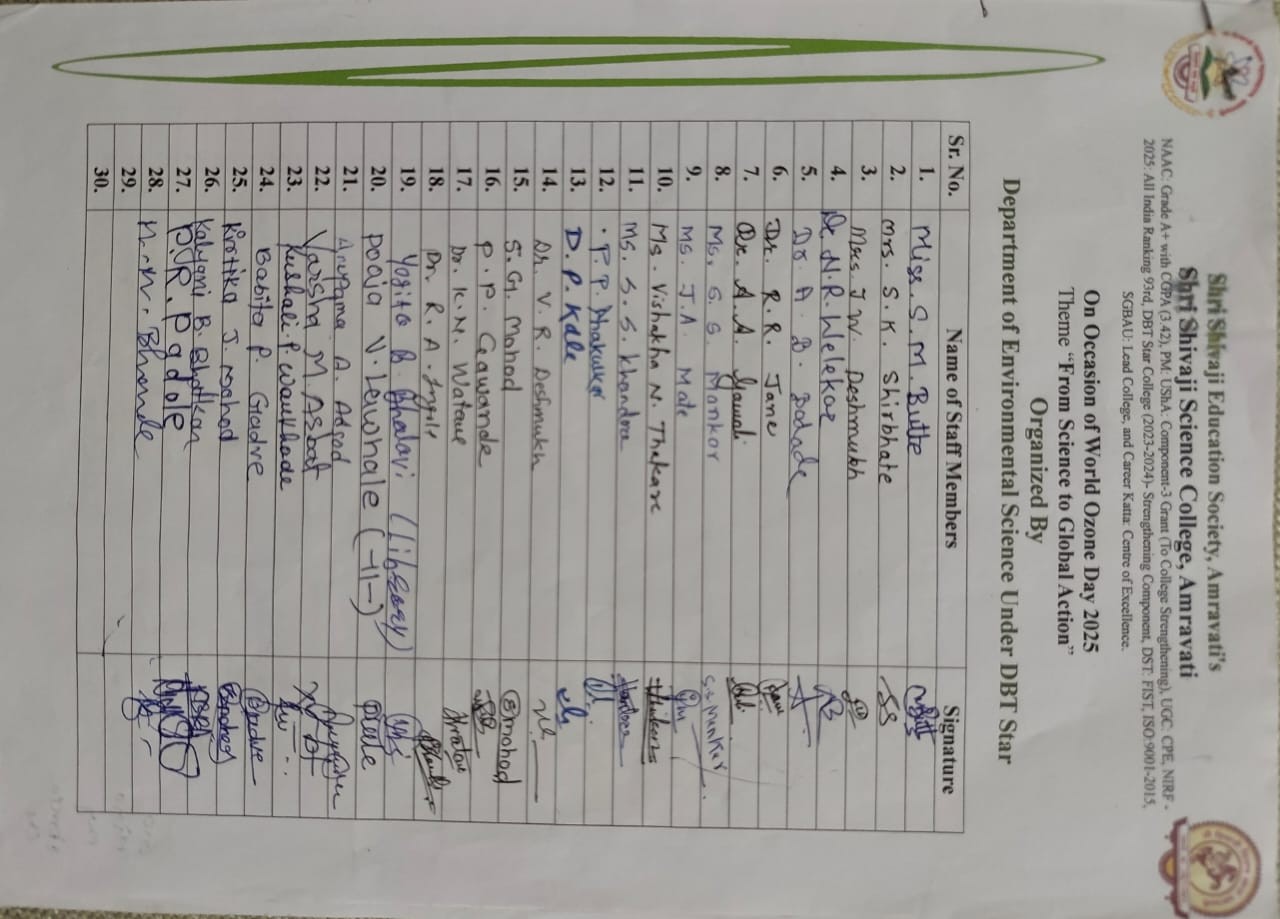 Shri Shivaji Education Society, Amravati's
Shri Shivaji Science College, Amravati
NAAC: Grade A+ with CGPA (3.42), PM: USHA: Component-3 Grant (To College Strengthening), UGC: CPE, NIRF-
2025: All India Ranking 93rd, DBT Star College (2023-2024)- Strengthening Component, DST: FIST, ISO:9001-2015,
SGBAU: Lead College, and Career Katta: Centre of Excellence.
On Occasion of World Ozone Day 2025
Theme "From Science to Global Action"
Organized By
Department of Environmental Science Under DBT Star
Sr. No. Name of Staff Members Signature
1. Miss. S. M. Butte
2. Mrs. S. K. Shirbhate SS
3. Mrs J. W. Deshmukh
4. Dr. N. R. Welekar
5. Dr. A. B. Dodade
6. Dr. R. R. Jane
7. Dr. A. A. Yawali
8. Ms. S. S. Mankar S.S Mankar
9. Ms. J. A. Mate
10. Ms. Vishakha N. Thakare
11. Ms. S. S. Khandra
12. P. P. Dhakulkar
13. D. P. Kale
14. Dr. V. R. Deshmukh
15. S. G. Mohod Gmohod
16. P. P. Gawande
17. Dr. K. N. Watane
18. Dr. R. A. Ingle
19. Yogita B. Bhalavi (Library)
20. Pooja V. Lewhale (-11-)
21. Anupama A. Asod
22. Varsha M. Asbat
23. Vushali P. Wankhade
24. Babita P. Gadve
25. Krotika J. Mohod
26. Kalyani B. Bhatkar
27. P. R. Padole
28. N. N. Bhonde
29.
30.